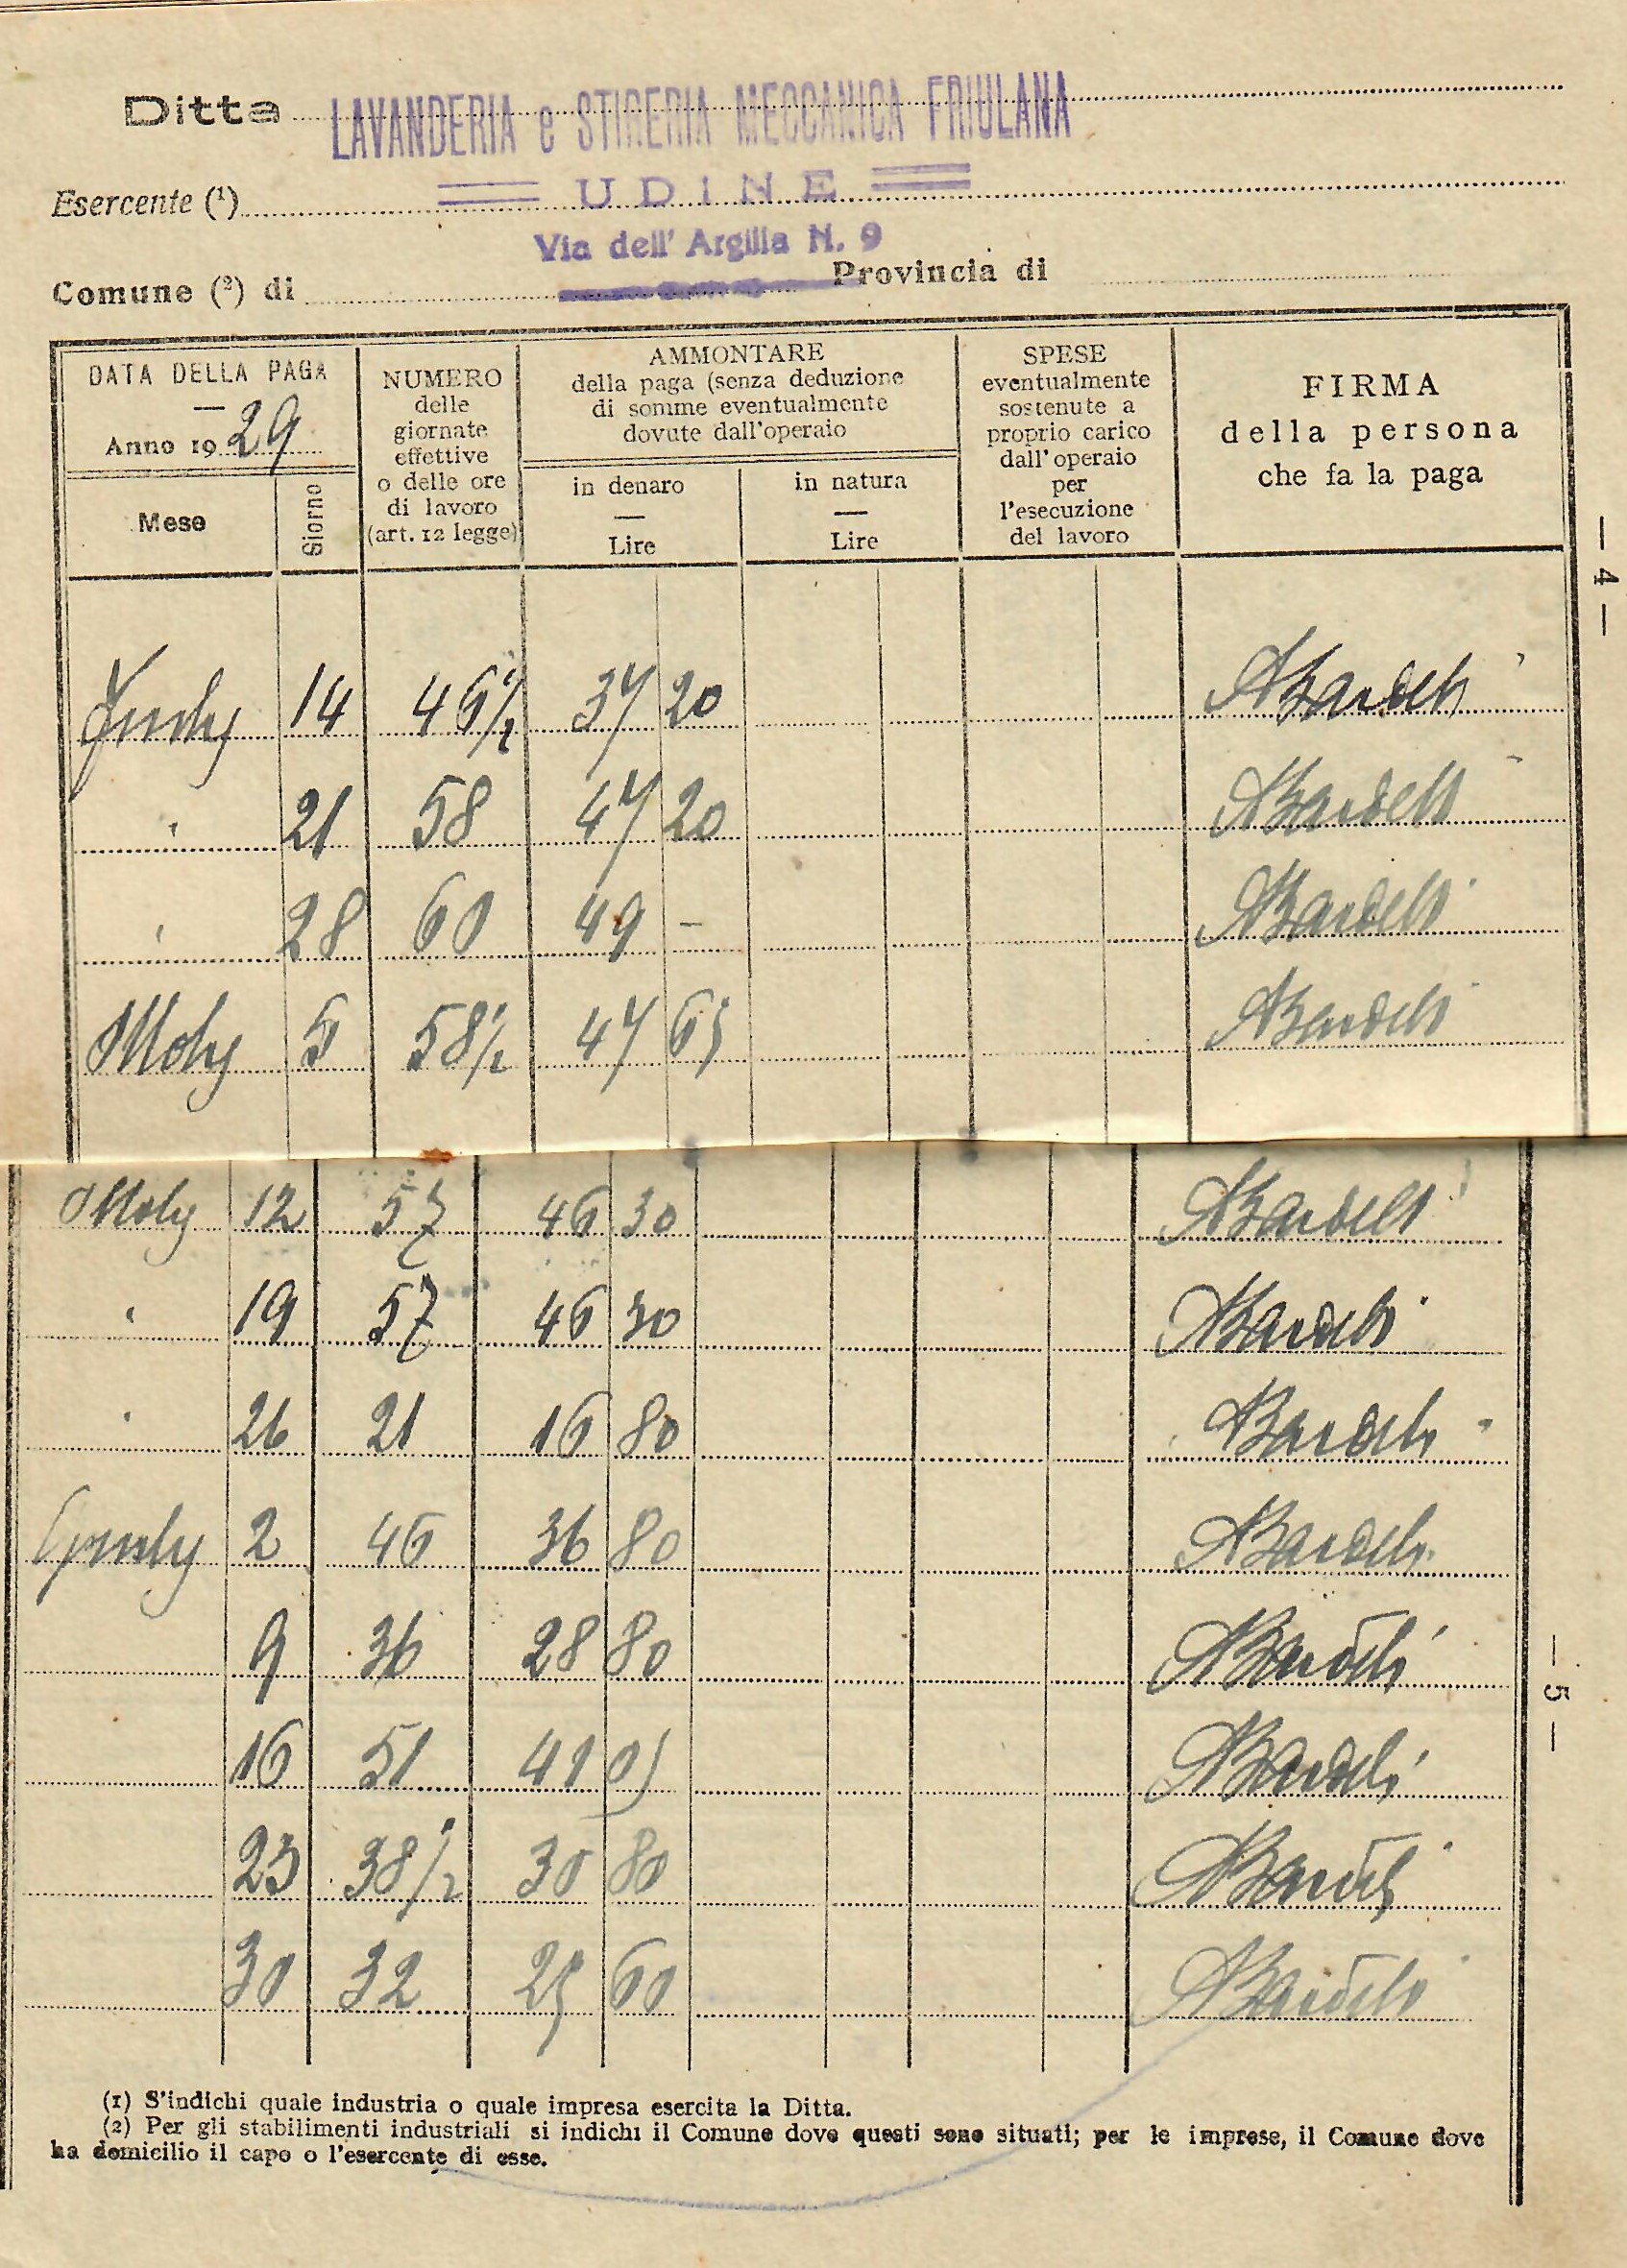 Ditta LAVANDERIA e STIRERIA MECCANICA FRIULANA
Esercente (¹) UDINE
Via dell' Argilla N. 9
Comune (²) di Provincia di
DATA DELLA PAGA
—
Anno 1929
Mese
Giorno
NUMERO
delle
giornate
effettive
o delle ore
di lavoro
(art. 12 legge)
AMMONTARE
della paga (senza deduzione
di somme eventualmente
dovute dall'operaio
in denaro
—
Lire
in natura
—
Lire
SPESE
eventualmente
sostenute a
proprio carico
dall'operaio
per
l'esecuzione
del lavoro
FIRMA
della persona
che fa la paga
— 4 —
14 46 1/2 37 20
" 21 58 47 20
" 28 60 49 -
5 58 1/2 47 65
12 57 46 30
" 19 57 46 30
" 26 21 16 80
2 46 36 80
9 36 28 80
16 51 41 05
23 38 1/2 30 80
30 32 25 60
— 5 —
(1) S'indichi quale industria o quale impresa esercita la Ditta.
(2) Per gli stabilimenti industriali si indichi il Comune dove questi sono situati; per le imprese, il Comune dove
ha domicilio il capo o l'esercente di esse.